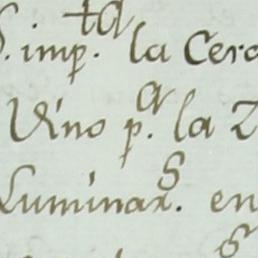 S. imp.ta la Cera
Vino p.a la Z
Luminar.s en